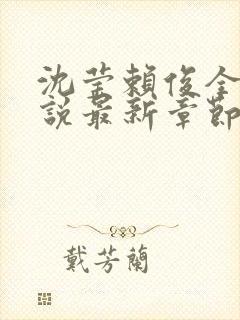 沈莹賴俊全
說最新章節
戴芳蘭